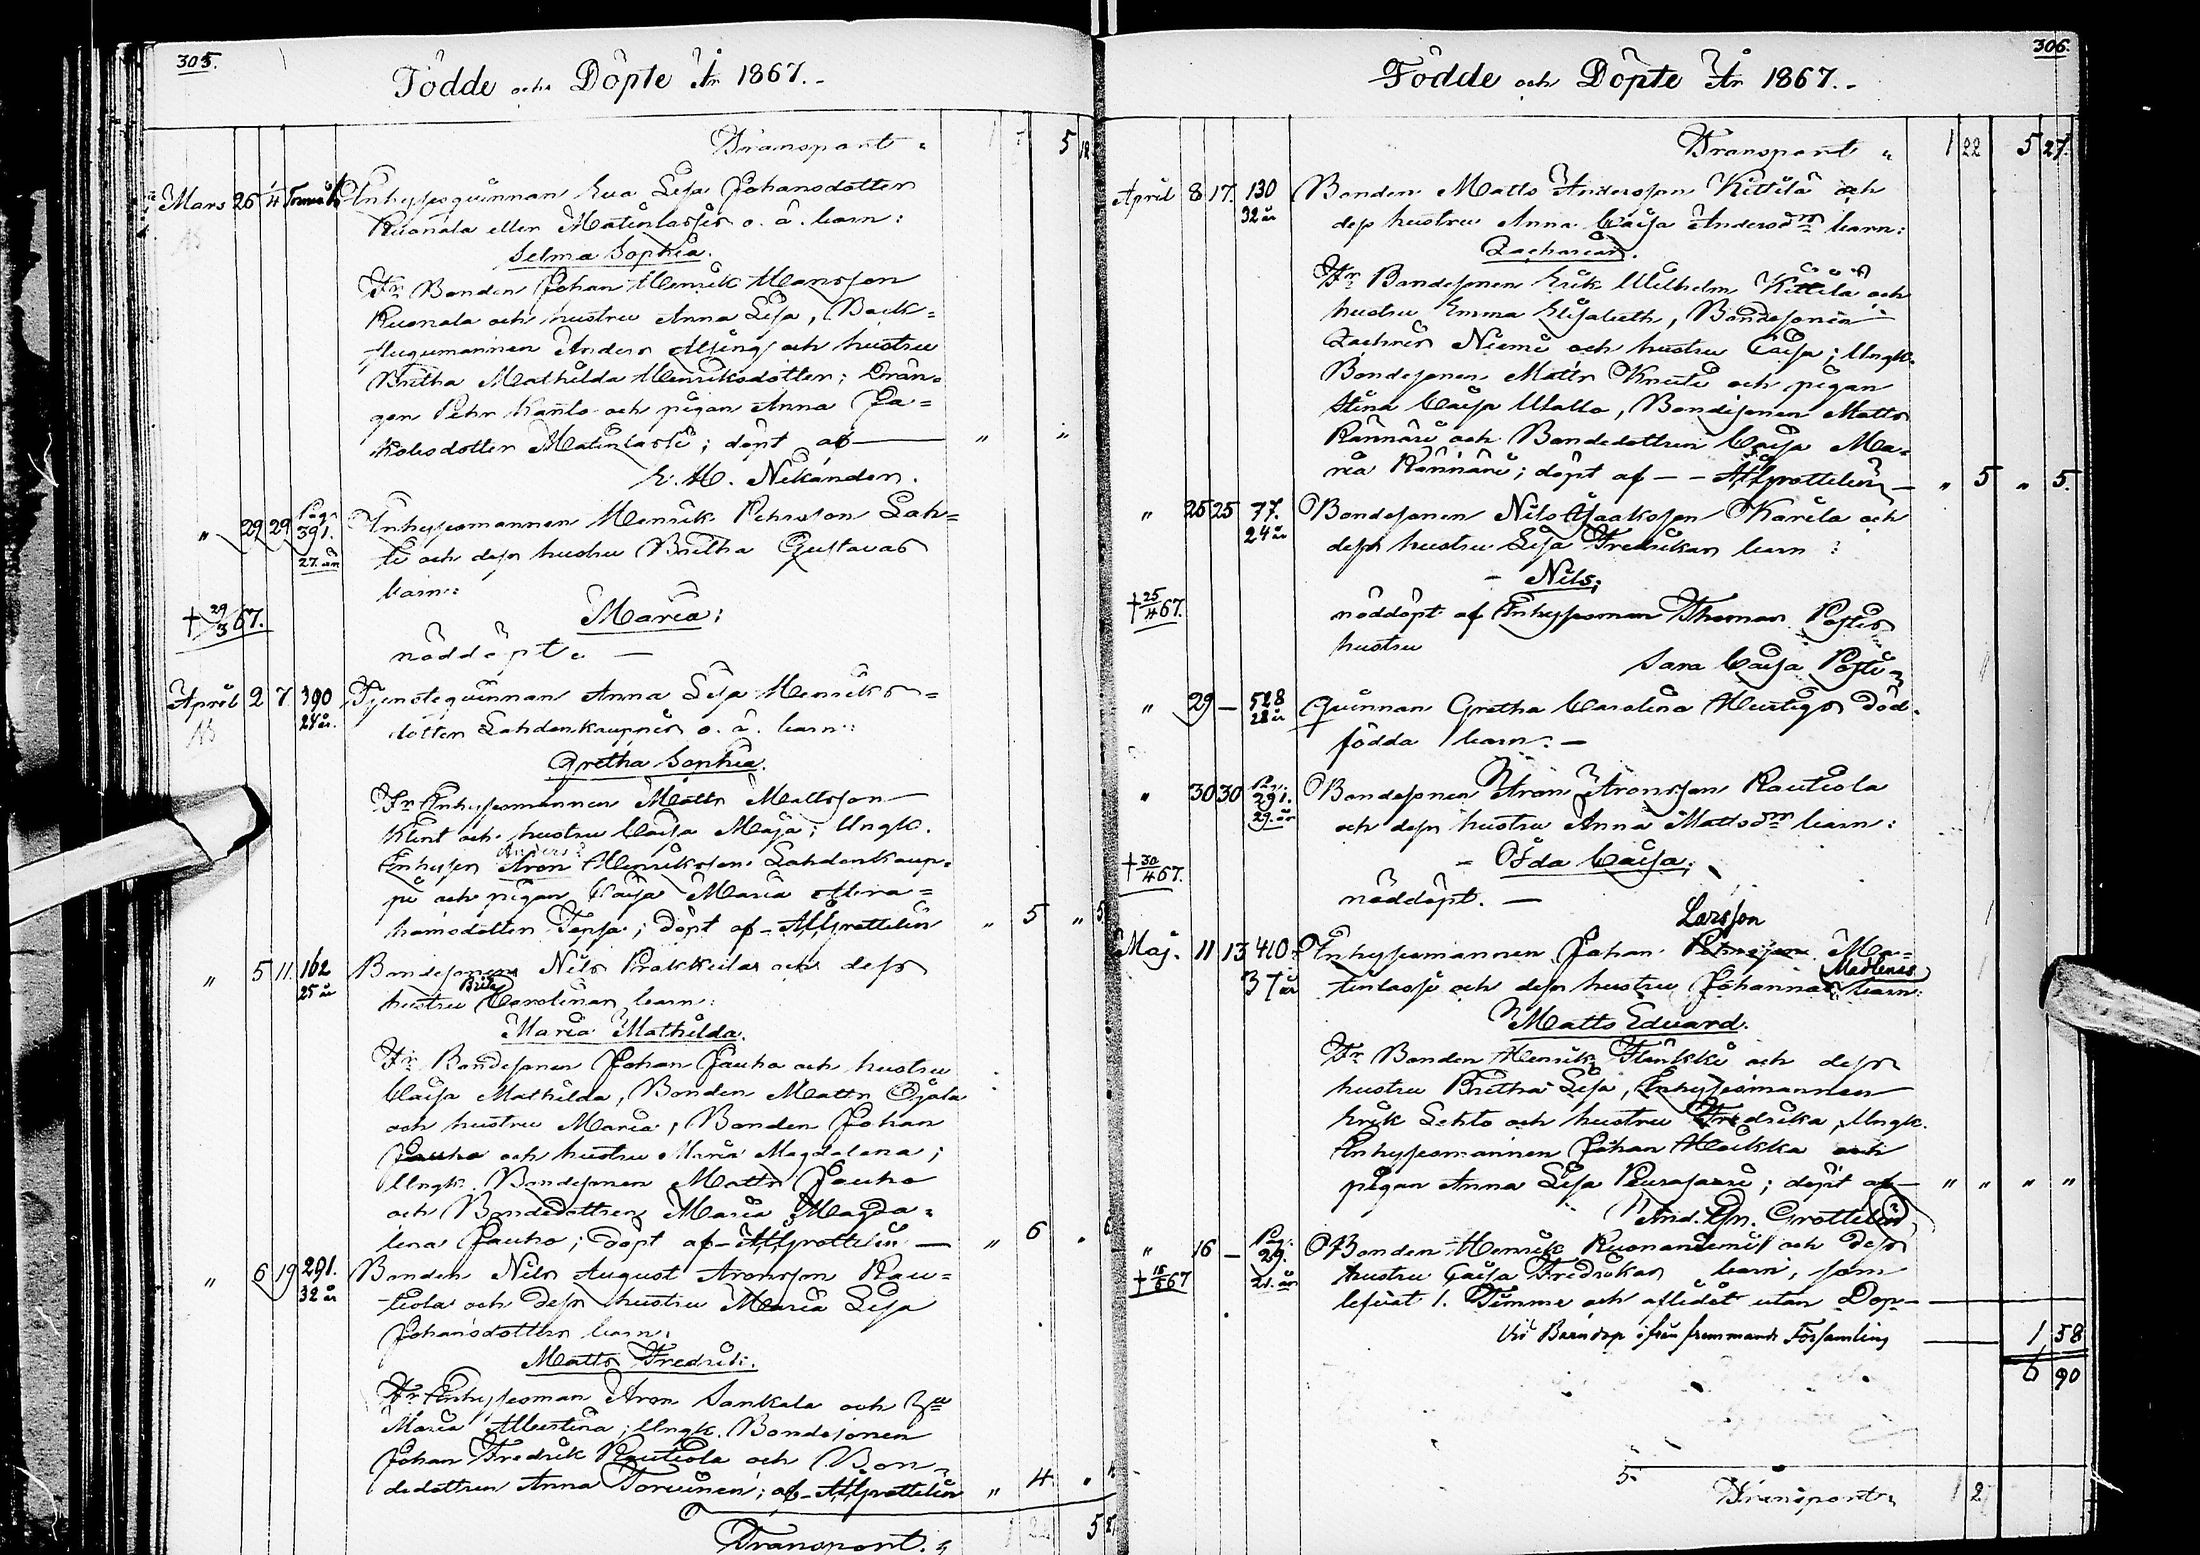 305.
Födde och Döpte År 1867.-
Transport " 5 12
Mars 26 1/4 Inhysesqvinnan Eva Lisa Johansdotter
Kuonala eller Matinlassis o. ä. barn:
Selma Sophia.
Fr. Bonden Johan Henrik Hansson
Kuonala och hustru Anna Lisa, Back=
stugumannen Anders och hustru
Britha Mathilda Henriksdotter; Drän=
gen Pehr Kanto och pigan Anna Ja=
kobsdotter Matinlassi; döpt af — " "
E. H. Nikander.
" 29 29 Pag. 391. 27 år Inhysesmannen Henrik Pehrsson Lah=
ti och dess hustru Britha Gustavas
barn:
† 29/3 67. Maria:
nöddöpt. —
April 2 7 390 24 år. Tjensteqvinnan Anna Lisa Henriks=
dotter Lahdenkauppis o. ä. barn:
Gretha Sophia.
Fr. Inhysesmannen Matts Mattsson
Klint och hustru Caisa Maja; Ungk.
Anders?
Inhyses Aron Henriksson Lahdenkaup=
pi och pigan Caisa Maria Abra=
hamsdotter Tapsa; döpt af - AGrottelin " 5 " 5
" 5 11. 162 25 år Bondesonen Nils Prakkilas och dess
Brita
hustru Carolinas barn:
Maria Mathilda.
Fr. Bondesonen Johan Jauho och hustru
Caisa Mathilda, Bonden Matts Ojala
och hustru Maria, Bonden Johan
Jauho och hustru Maria Magdalena;
Ungk. Bondesonen Matts Jauho
och Bondedottren Maria Magda=
lena Jauho; döpt af - AGrottelin — " 6 " 6
" 6 19 291. 32 år Bonden Nils August Aronsson Rau=
tiola och dess hustru Maria Lisa
Johansdotters barn:
Matts Fredrik.
Fr. Inhysesman Aron Sankala och
Maria Albertina; Ungk. Bondesonen
Johan Fredrik Rautiola och Bon=
dedottren Anna Torvinen; af - AGrottelin " 4 "
Transport. 5 27
306.
Födde och Döpte År 1867.-
Transport " 1 22 5 27.
April 8 17. 130 32 år Bonden Matts Andersson Kittilä och
dess hustru Anna Caisa Andersdrs barn:
Zacharias.
Fr. Bondesonen Erik Wilhelm Kittilä och
hustru Emma Elisabeth, Bondesonen
Zachris Niemi och hustru Caisa; Ungk.
Bondesonen Matts Knuti och pigan
Stina Caisa Ulatto, Bondesonen Matts
Rännäri och Bondedottren Caisa Ma=
ria Rännäri; döpt af - - AGrottelin — " 5 " 5.
" 25 25 77. 24 år Bondesonen Nils Isaksson Karila och
dess hustru Lisa Fredrikas barn:
- Nils;
† 25/4 67. nöddöpt af Inhysesman Thomas
hustru
Sara Caisa
" 29 — 528 28 år Qvinnan Gretha Carolina Hurtigs död=
födda barn. —
" 30 30 Pag. 291. 29. år Bondesonen Aron Aronsson Rautiola
och dess hustru Anna Mattsdrs barn:
† 30/4 67. - Ida Caisa;
nöddöpt. —
Larsson
Maj. 11 13 410. 37 år Inhysesmannen Johan Ma=
Madlenas
tinlassi och dess hustru Johannas barn:
Matts Eduard.
Fr. Bonden Henrik Flinkki och dess
hustru Britha Lisa, Inhysesmannen
Erik Lehto och hustru Fredrika, Ungk.
Inhysesmannen Johan Heikka och
pigan Anna Lisa Peurasaari; döpt af — " " " "
And. Gn. Grottelin
" 16 — Pag. 29. 21. år Bonden Henrik Kuonanniemis och dess
† 16/5 67 hustru Caisa Fredrikas barn, som
lefvat 1. Timme och aflidit utan Dop —
Vid Barndop ifrån fremmande Församling — 1 58
6 90
5-
Transport 1 2